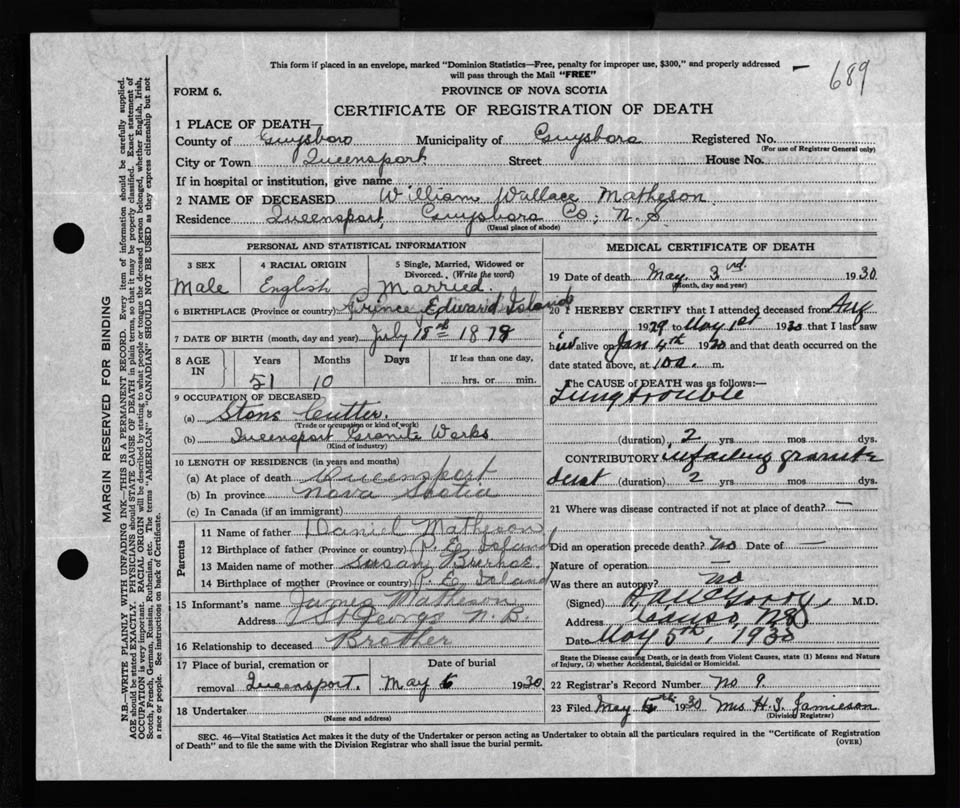 This form if placed in an envelope, marked "Dominion Statistics—Free, penalty for improper use, $300," and properly addressed
will pass through the Mail "FREE"
— 689
FORM 6.
PROVINCE OF NOVA SCOTIA
CERTIFICATE OF REGISTRATION OF DEATH
1 PLACE OF DEATH—
County of Guysboro Municipality of Guysboro Registered No.
(For use of Registrar General only)
City or Town Queensport Street House No.
If in hospital or institution, give name
2 NAME OF DECEASED William Wallace Matheson
Residence Queensport, Guysboro Co; N. S
(Usual place of abode)
PERSONAL AND STATISTICAL INFORMATION
3 SEX 4 RACIAL ORIGIN 5 Single, Married, Widowed or Divorced. (Write the word)
Male English Married.
6 BIRTHPLACE (Province or country) Prince Edward Island
7 DATE OF BIRTH (month, day and year) July 18th 1878
8 AGE IN Years Months Days If less than one day,
51 10 hrs. or min.
9 OCCUPATION OF DECEASED
(a) Stone Cutter.
(Trade or occupation or kind of work)
(b) Queensport Granite Works
(Kind of industry)
10 LENGTH OF RESIDENCE (in years and months)
(a) At place of death Queensport
(b) In province Nova Scotia
(c) In Canada (if an immigrant)
Parents
11 Name of father Daniel Matheson
12 Birthplace of father (Province or country) P. E. Island
13 Maiden name of mother Susan
14 Birthplace of mother (Province or country) P. E. Island
15 Informant's name James Matheson
Address St George N. B.
16 Relationship to deceased Brother
17 Place of burial, cremation or removal Queensport. Date of burial May 6 1930
18 Undertaker
(Name and address)
MEDICAL CERTIFICATE OF DEATH
19 Date of death May 3rd. 1930
(Month, day and year)
20 I HEREBY CERTIFY that I attended deceased from Aug
1929 to May 1st 1930 that I last saw
him alive on Jan 4th 1930 and that death occurred on
date stated above, at m.
The CAUSE OF DEATH was as follows:—
Lung trouble
(duration) 2 yrs mos dys.
CONTRIBUTORY granite
dust (duration) 2 yrs mos dys.
21 Where was disease contracted if not at place of death? —
Did an operation precede death? no Date of —
Nature of operation —
Was there an autopsy? no
(Signed) M.D.
Address Canso, N.S
Date May 5th, 1930
State the Disease causing Death, or in death from Violent Causes, state (1) Means and Nature
of Injury, (2) whether Accidental, Suicidal or Homicidal.
22 Registrar's Record Number No 9.
23 Filed May 1930 Mrs H. J. Jamieson
(Division Registrar)
SEC. 46—Vital Statistics Act makes it the duty of the Undertaker or person acting as Undertaker to obtain all the particulars required in the "Certificate of Registration
of Death" and to file the same with the Division Registrar who shall issue the burial permit.
(OVER)
MARGIN RESERVED FOR BINDING
N.B.—WRITE PLAINLY WITH UNFADING INK—THIS IS A PERMANENT RECORD. Every item of information should be carefully supplied.
AGE should be stated EXACTLY. PHYSICIANS should STATE CAUSE OF DEATH in plain terms, so that it may be properly classified. Exact statement of
OCCUPATION is very important. RACIAL ORIGIN will be described by stating to what people or tongue the deceased person belonged, whether English, Irish,
Scotch, French, German, Russian, Ruthenian, etc. The terms "AMERICAN" or "CANADIAN" SHOULD NOT BE USED as they express citizenship but not
a race or people. See instructions on back of Certificate.